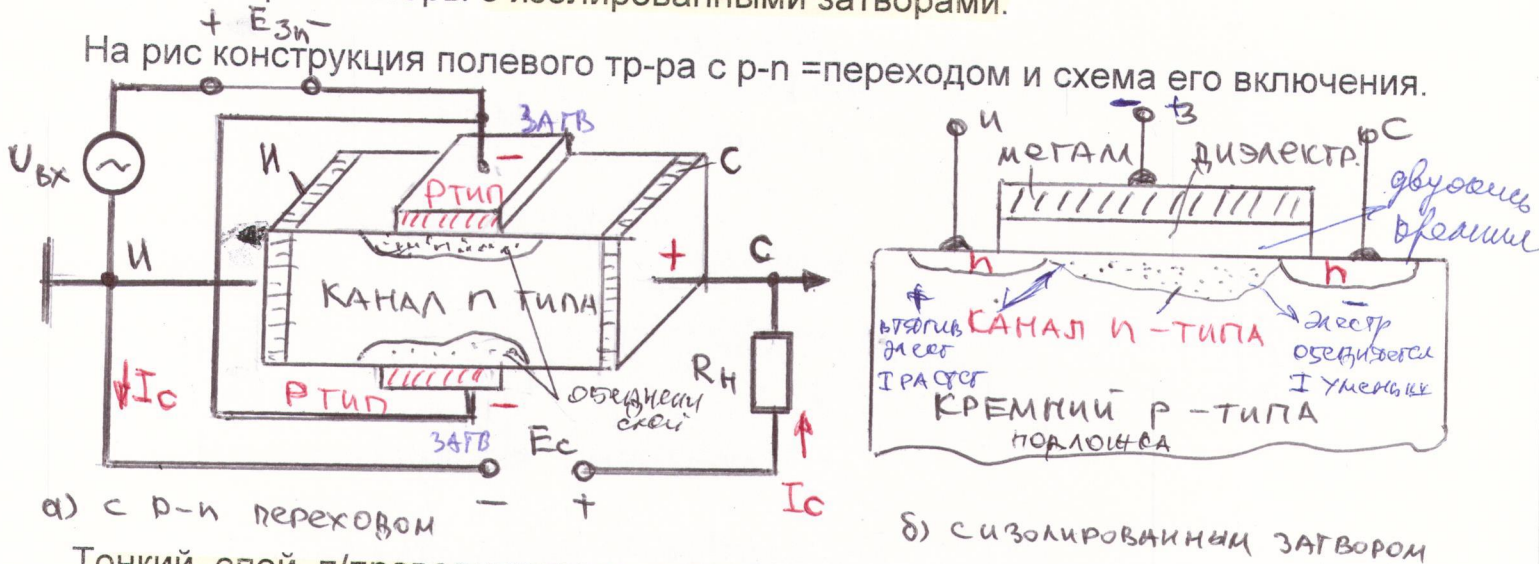 с изолированными затворами.
+ Eзп -
На рис конструкция полевого тр-ра с p-n =переходом и схема его включения.
Uвх
~
И
ЗАТВ
-
P ТИП
С
И
КАНАЛ n ТИПА
+
С
Rн
Ic
P ТИП
-
ЗАТВ
обеднен
слой
Ec
-
+
Ic
а) с p-n переходом
И
-
+
З
С
МЕТАЛ
ДИЭЛЕКТР.
двуокись
кремния
n
n
+
втягив
элект
I растет
КАНАЛ n - ТИПА
-
электр
обедняется
I уменьш
КРЕМНИЙ p - ТИПА
подложка
б) с изолированным затвором
Тонкий слой